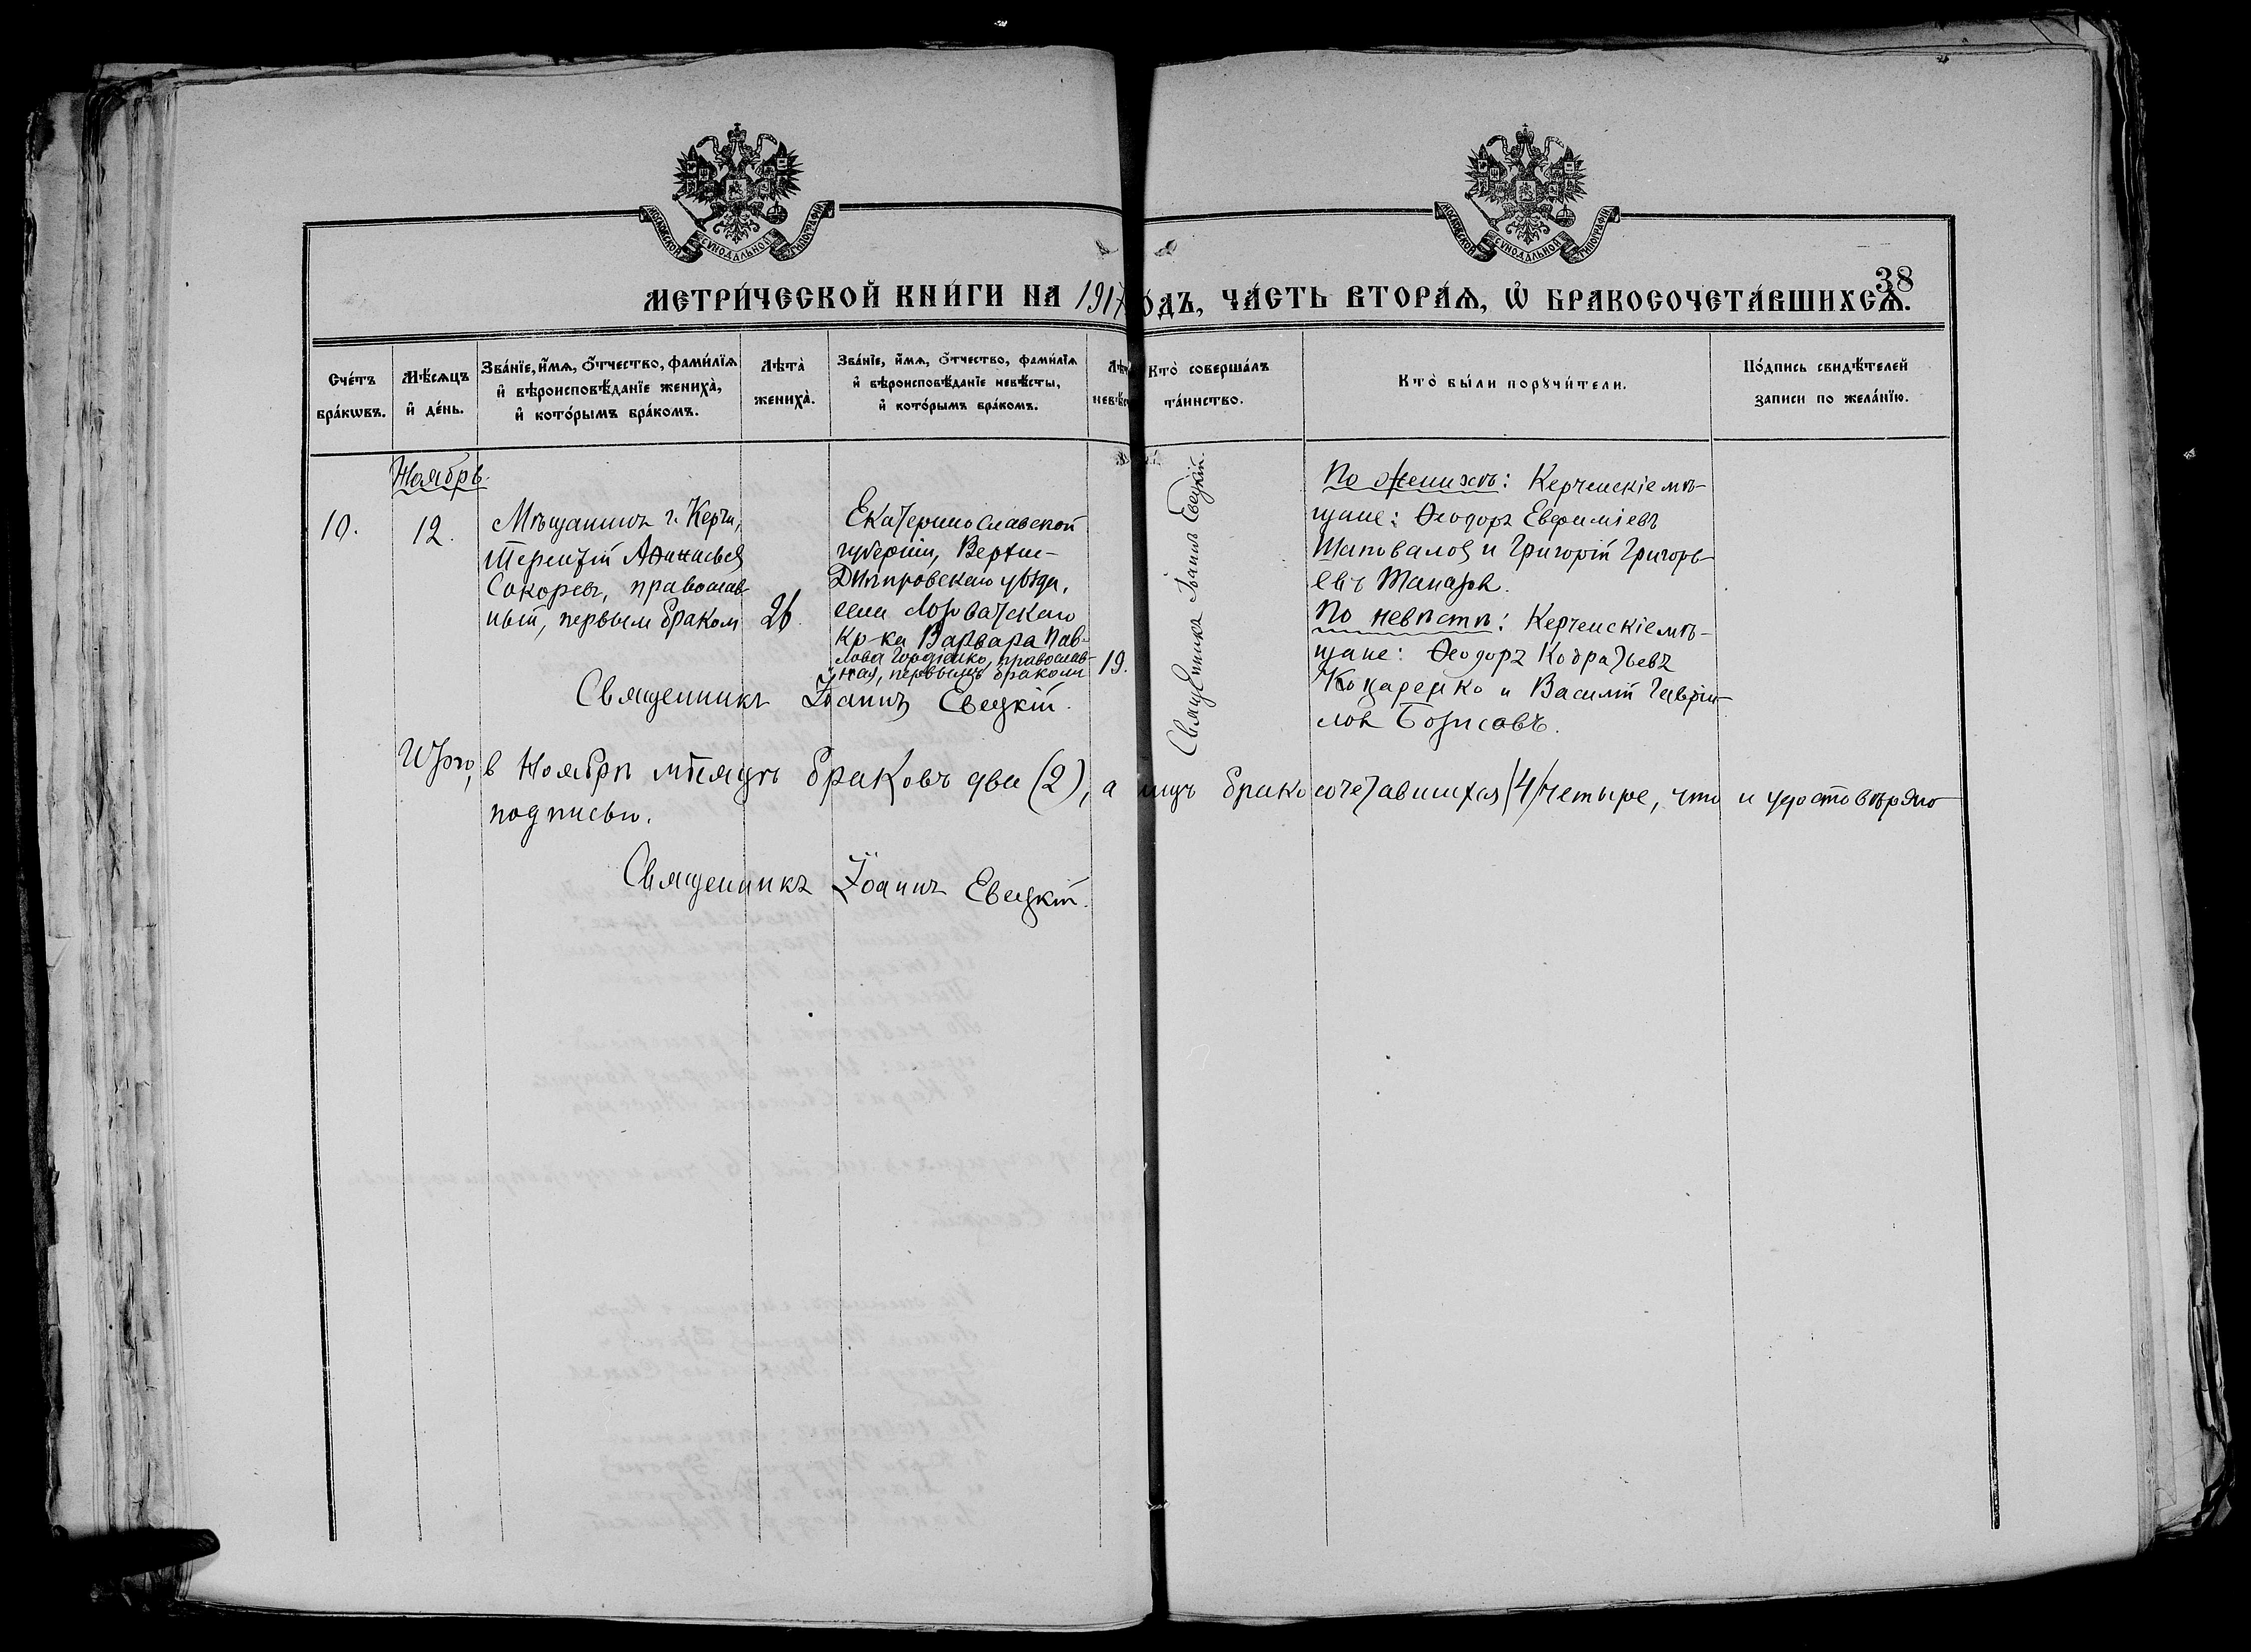 МОСКОВСКОЙ СѴНОДАЛЬНОЙ ТИПОГРАФІИ
МОСКОВСКОЙ СѴНОДАЛЬНОЙ ТИПОГРАФІИ
38
МЕТРИ́ЧЕСКОЙ КНИ́ГИ НА 1917
О́ДЪ, ЧА́СТЬ ВТОРА́Ѧ, Ѡ҆ БРАКОСОЧЕТА́ВШИХСѦ.
Сче́тъ бра́кѡвъ.
Мѣ́сѧцъ и҆ де́нь.
Зва́нїе, и҆́мѧ, ѻ҆́тчество, фами́лїѧ
и҆ вѣроисповѣ́данїе жениха̀,
и҆ кото́рымъ бра́комъ.
Лѣ́та̀ жениха̀.
Зва́нїе, и҆́мѧ, ѻ҆́тчество, фами́лїѧ
и҆ вѣроисповѣ́данїе невѣ́сты,
и҆ кото́рымъ бра́комъ.
Кто̀ соверша́лъ
та́инство.
Кто̀ бы́ли порꙋчи́тели.
По́дпись свидѣ́телей
записи по жела́нїю.
Ноябрь.
10.
12.
Мѣщанинъ г. Керчи,
Терентій Аѳанасьев
Сокорев, православ
ный, первым браком
26.
Екатеринославской
губерніи, Верхне-
Днѣпровскаго уѣзда,
села Лозоватскаго
кр-ка Варвара Пав-
лова Гордіенко, православ-
ная, первымъ браком
19.
Священник Іоаннъ Евецкій.
По женихѣ: Керченскіе мѣ-
щане: Ѳеодоръ Евфиміевъ
Шаповалов и Григорій Григорь-
евъ
По невѣстѣ: Керченскіе мѣ-
щане: Ѳеодоръ Кодратьевъ
и Василій Гаврии-
лов Борисовъ.
Священникъ Іоаннъ Евецкій.
Итого, в Ноябрѣ мѣсяцѣ браковъ два (2), а лицъ бракосочетавшихся /4/ четыре, что и удостовѣряю
подписью.
Священникъ Іоаннъ Евецкій.